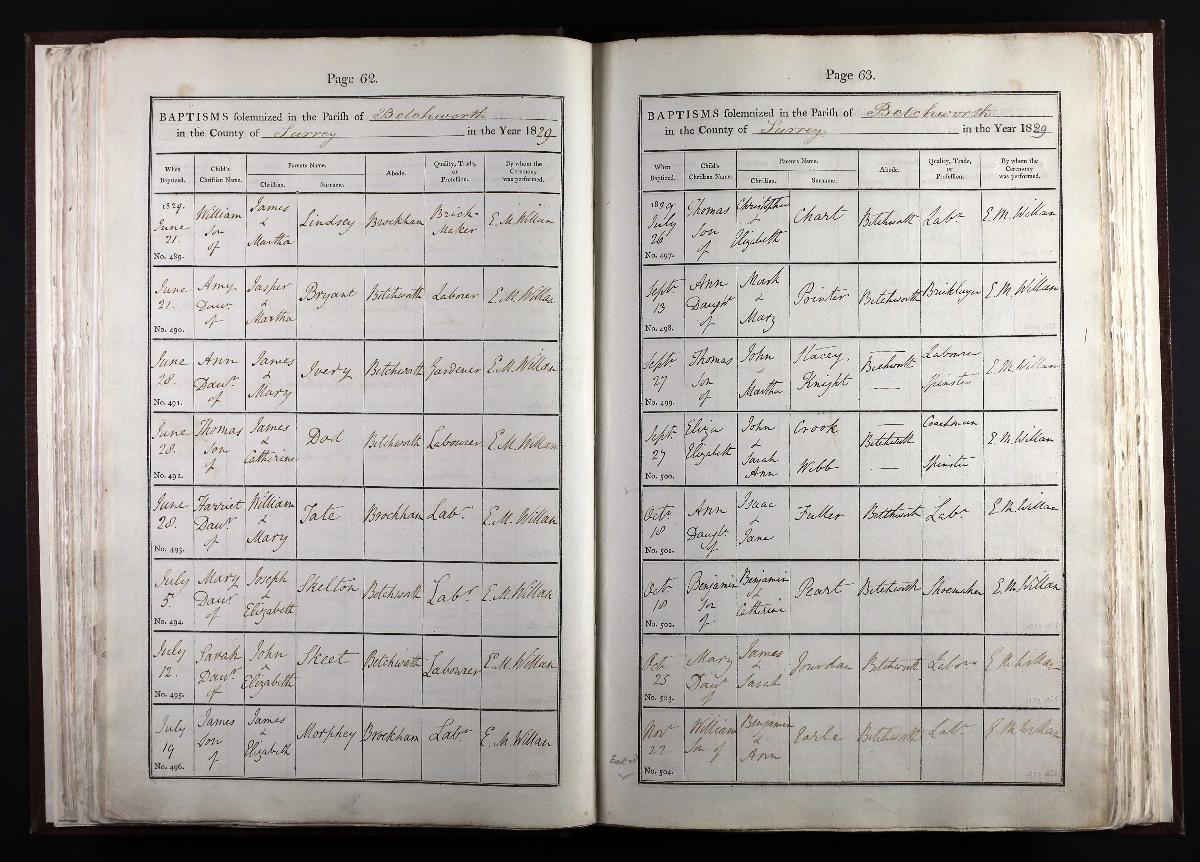 Page 62.
BAPTISMS solemnized in the Parish of Betchworth
in the County of Surrey in the Year 1829
When Baptized. Child's Christian Name. Parents Name. Christian. Surname. Abode. Quality, Trade, or Profession. By whom the Ceremony was performed.
1829. June 21. No. 489. William Son of James & Martha Lindsey Brockham Brick-Maker E. M. Willan
June 21. No. 490. Amy Daur. of Jasper & Martha Bryant Betchworth Laborer E. M. Willan
June 28. No. 491. Ann Daur. of James & Mary Ivery Betchworth Gardener E. M. Willan
June 28. No. 492. Thomas Son of James & Catherine Dod Betchworth Labourer E. M. Willan
June 28. No. 493. Harriet Daur. of William & Mary Tate Brockham Labr. E. M. Willan
July 5. No. 494. Mary Daur. of Joseph & Elizabeth Skelton Betchworth Labr. E. M. Willan
July 12. No. 495. Sarah Daur. of John & Elizabeth Skeet Betchworth Labourer E. M. Willan
July 19 No. 496. James Son of James & Elizabeth Morphey Brockham Labr. E. M. Willan
Page 63.
BAPTISMS solemnized in the Parish of Betchworth
in the County of Surrey. in the Year 1829
When Baptized. Child's Christian Name. Parents Name. Christian. Surname. Abode. Quality, Trade, or Profession. By whom the Ceremony was performed.
1829 July 26 No. 497. Thomas Son of Christopher & Elizabeth Chart Betchworth Labr. E. M. Willan
Septr. 13 No. 498. Ann Daughr. of Mark & Mary Pointer Betchworth Bricklayer E. M. Willan
Septr. 27 No. 499. Thomas Son of John & Martha Stacey. Knight Betchworth — Labourer Spinster E. M. Willan
Septr. 27 No. 500. Eliza Elizabeth John & Sarah Ann Crook Webb — Betchworth — Coachman Spinster E. M. Willan
Octr. 18 No. 501. Ann Daughr. of Isaac & Jane Fuller Betchworth Labr. E. M. Willan
Octr. 18 No. 502. Benjamin Son of Benjamin & Catherine Peart Betchworth Shoemaker E. M. Willan
Octr. 25 No. 503. Mary Daur. of James & Sarah Jourdan Betchworth Labour E. M. Willan
Novr. 22 No. 504. William Son of Benjamin & Ann Earle Betchworth Labr. E. M. Willan